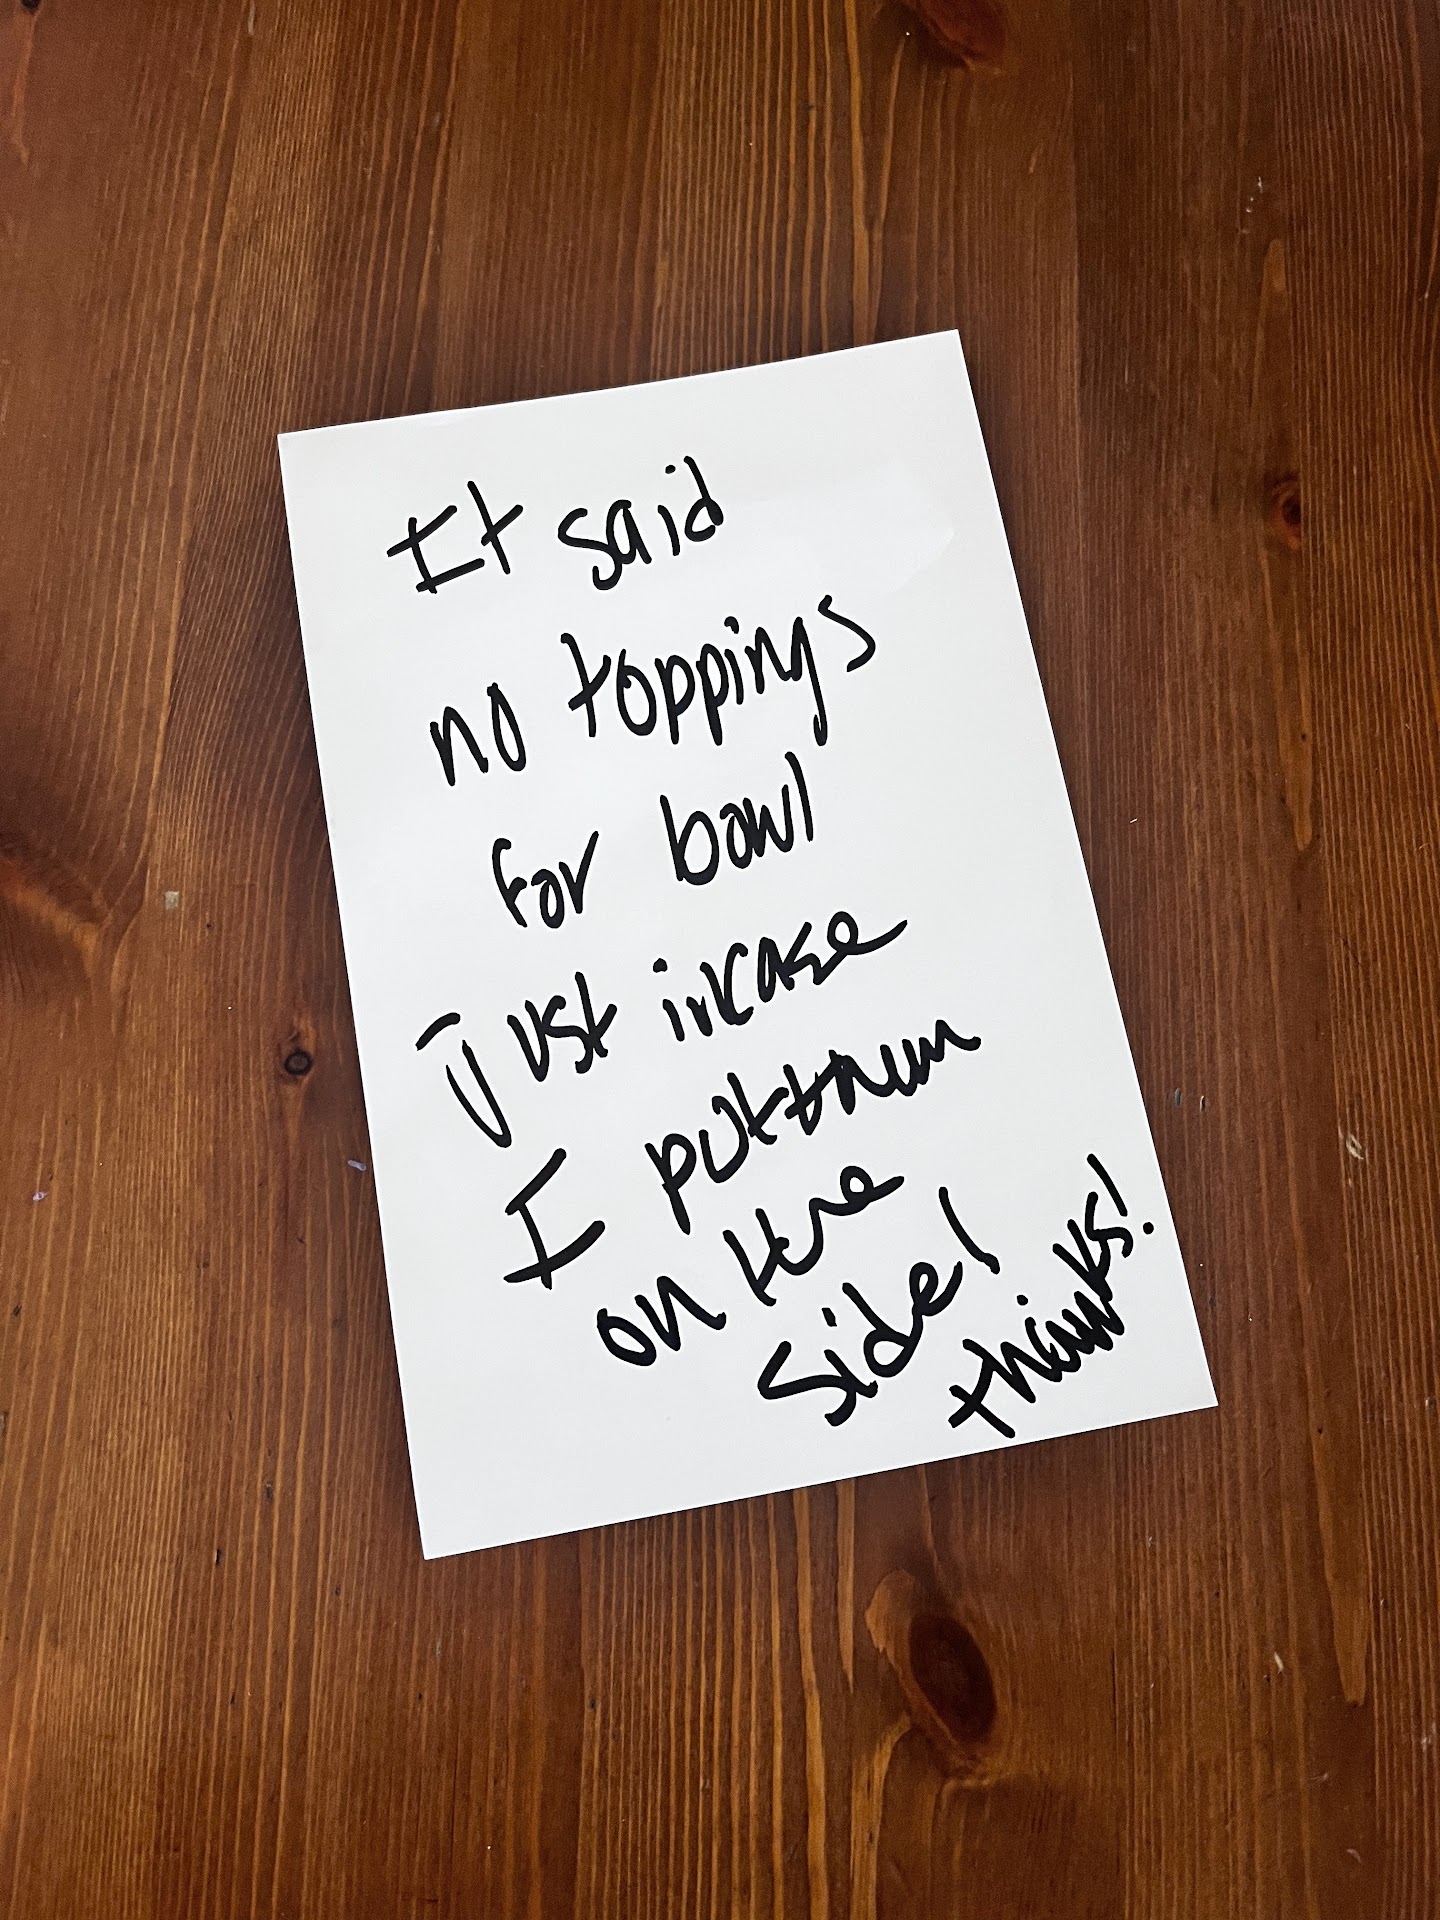 It said
no toppings
for bowl
Just incase
I put them
on the
side!
thanks!